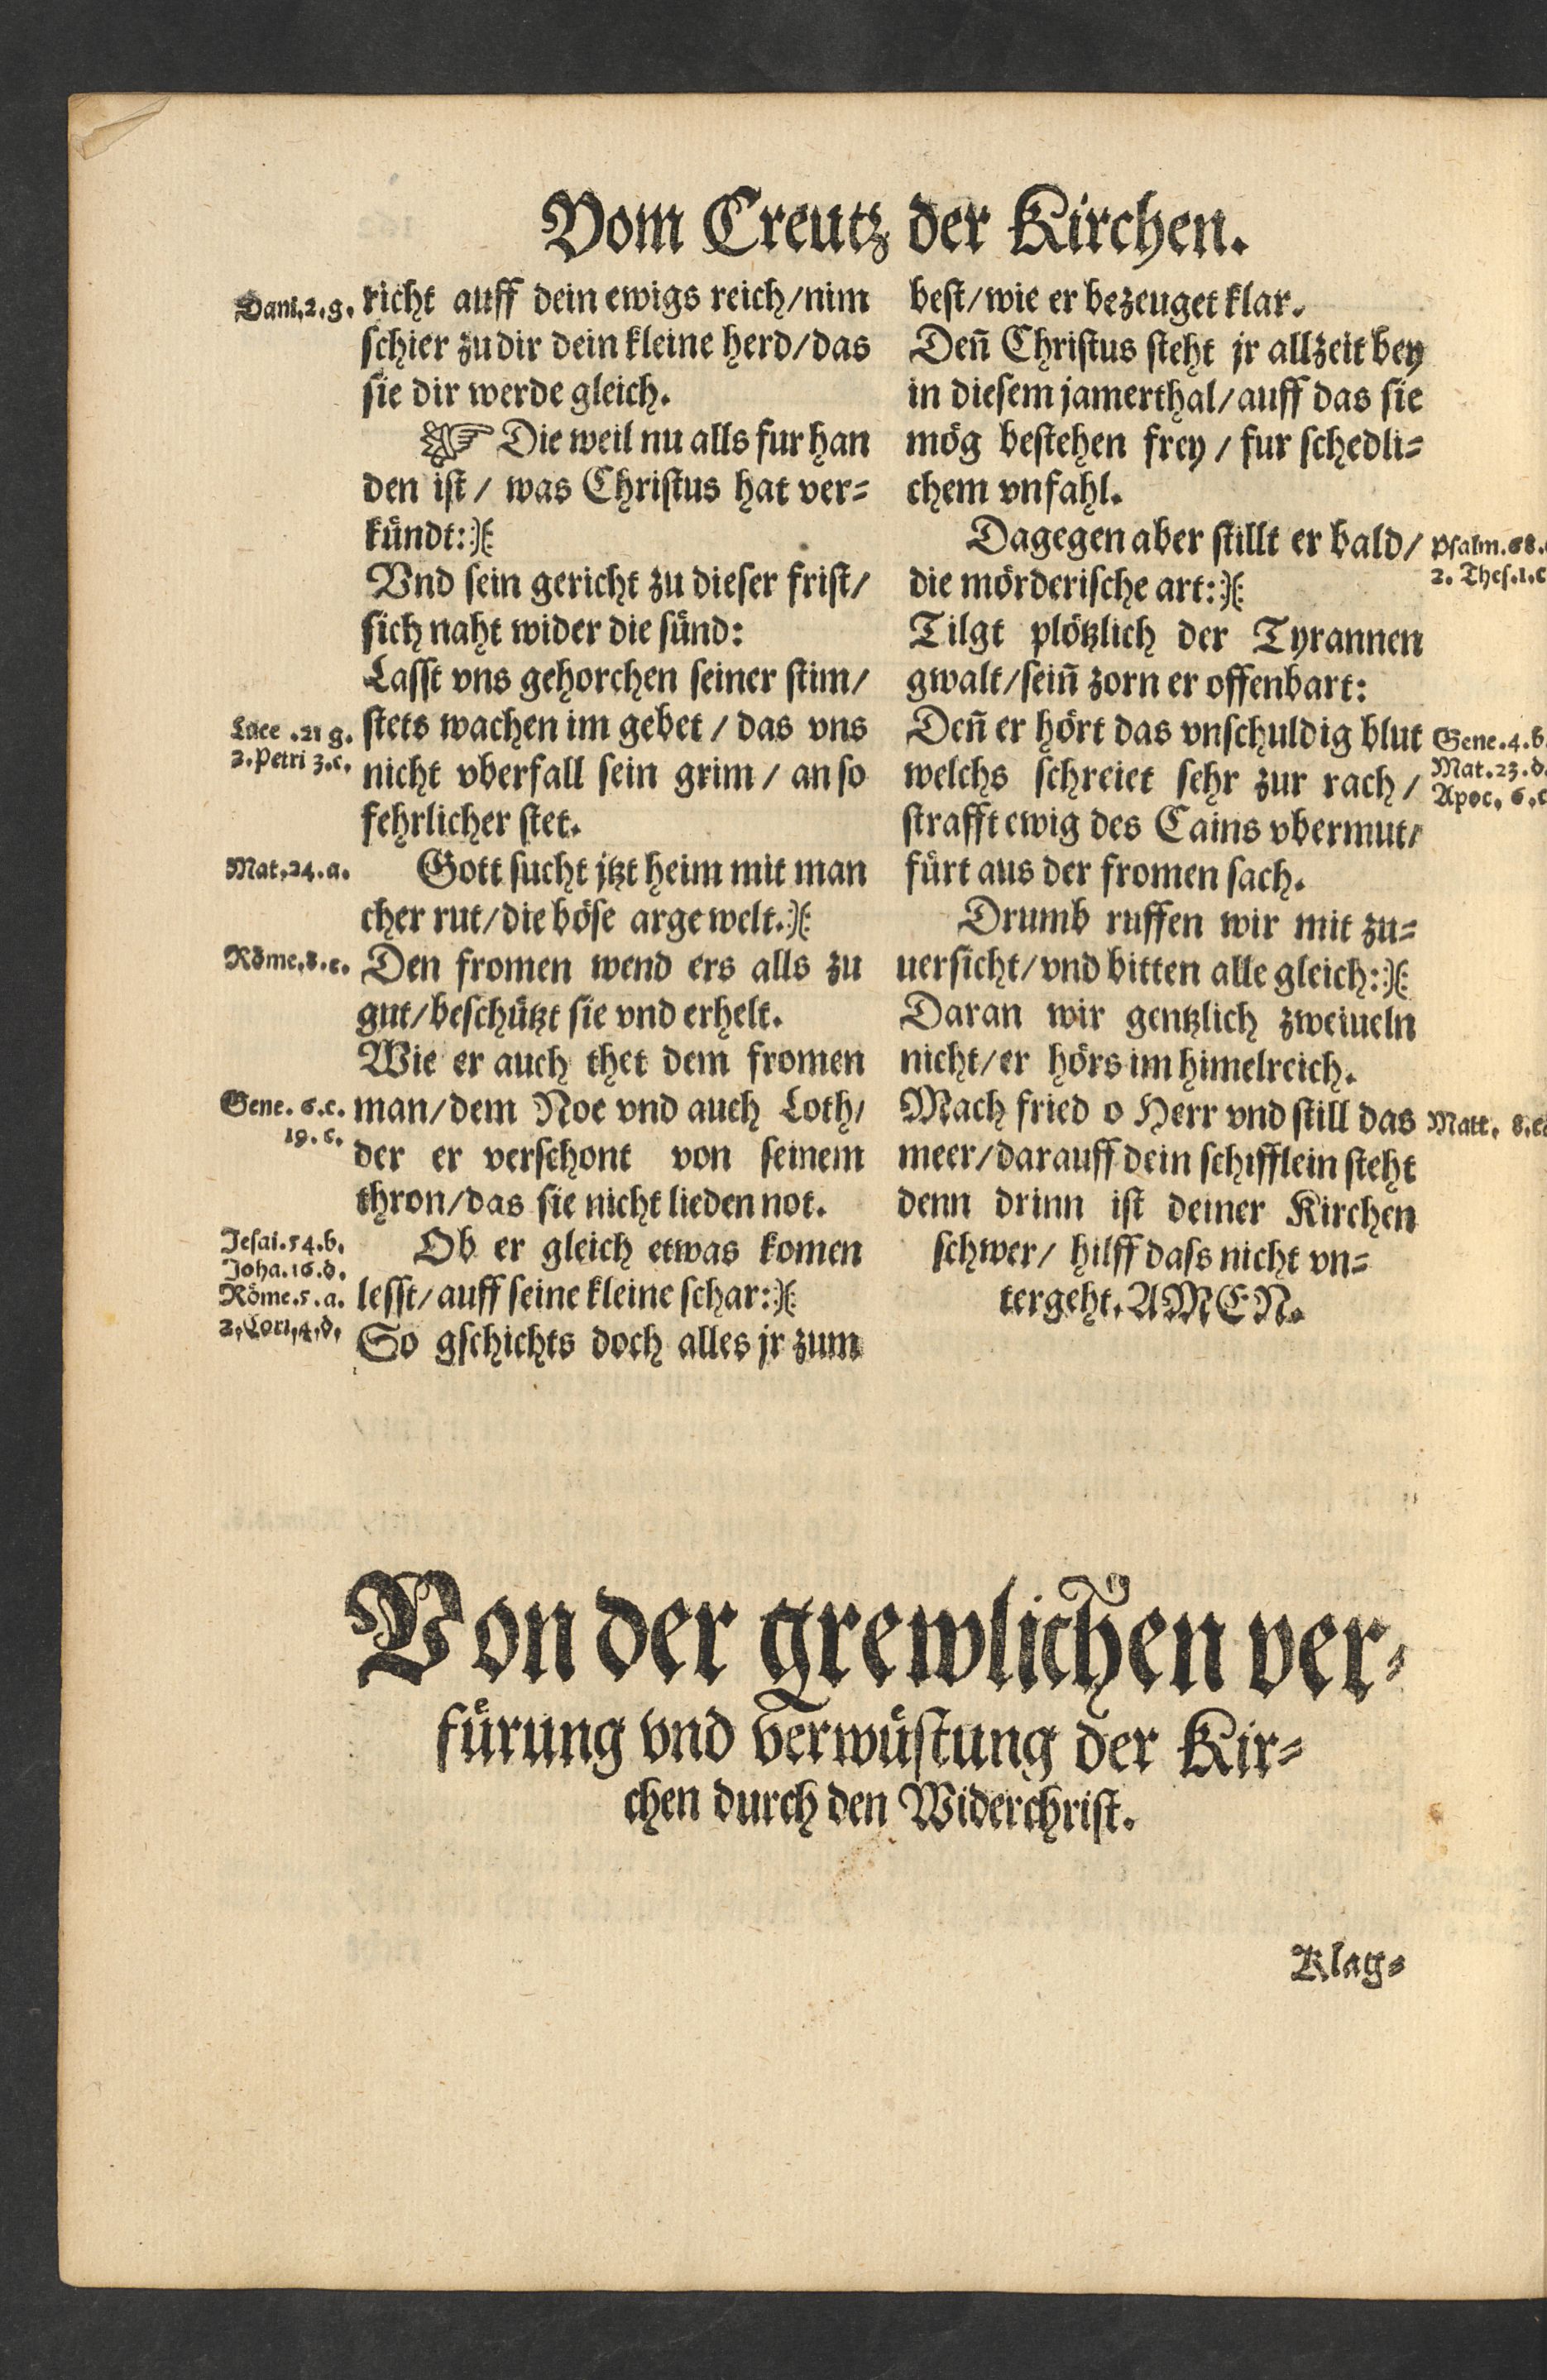 Vom Creutz der Kirchen.
Dani.2.g.
richt auff dein ewigs reich/nim
schier zu dir dein kleine herd/das
sie dir werde gleich.
☞ Die weil nu alls fur han
den ist / was Christus hat ver⸗
kündt:)(:
Vnd sein gericht zu dieser frist/
sich naht wider die sünd:
Lasst vns gehorchen seiner stim/
Luce .21 g.
2.Petri 3.c.
stets wachen im gebet / das vns
nicht vberfall sein grim / an so
fehrlicher stet.
Mat.24.a.
Gott sucht jtzt heim mit man
cher rut/die böse arge welt.)(:
Röme.8.e.
Den fromen wend ers alls zu
gut/beschützt sie vnd erhelt.
Wie er auch thet dem fromen
Gene. 6.c.
19. c.
man/dem Noe vnd auch Loth/
der er verschont von seinem
thron/das sie nicht lieden not.
Jesai.54.b.
Joha.16.d.
Röme.5.a.
2.Cori.4.d.
Ob er gleich etwas komen
lesst/auff seine kleine schar:)(:
So gschichts doch alles jr zum
best/wie er bezeuget klar.
Deñ Christus steht jr allzeit bey
in diesem jamerthal/auff das sie
mög bestehen frey / fur schedli⸗
chem vnfahl.
Dagegen aber stillt er bald/
Psalm.68.
2. Thes.1.c
die mörderische art:)(:
Tilgt plötzlich der Tyrannen
gwalt/seiñ zorn er offenbart:
Deñ er hört das vnschuldig blut
Gene.4.b.
Mat.23.d.
Apoc. 6.c
welchs schreiet sehr zur rach /
strafft ewig des Cains vbermut/
fürt aus der fromen sach.
Drumb ruffen wir mit zu⸗
uersicht/vnd bitten alle gleich:)(:
Daran wir gentzlich zweiueln
nicht/er hörs im himelreich.
Mach fried o Herr vnd still das
Matt. 8.c
meer/darauff dein schifflein steht
denn drinn ist deiner Kirchen
schwer/ hilff dass nicht vn⸗
tergeht. AMEN.
Von der grewlichen ver⸗
fürung vnd verwüstung der Kir⸗
chen durch den Widerchrist.
Klag⸗